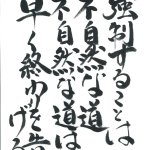 強制することは
不自然な道
不自然な道は
早く終わりを告げる